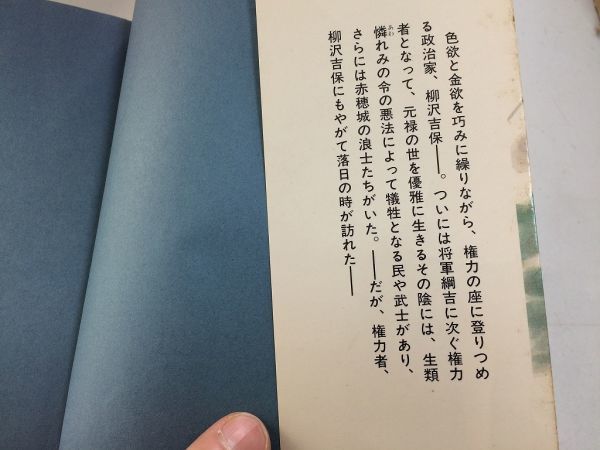 色欲と金欲を巧みに繰りながら、権力の座に登りつめ
る政治家、柳沢吉保――。ついには将軍綱吉に次ぐ権力
者となって、元禄の世を優雅に生きるその陰には、生類
憐れみの令の悪法によって犠牲となる民や武士があり、
あわ
さらには赤穂城の浪士たちがいた。――だが、権力者、
柳沢吉保にもやがて落日の時が訪れた――